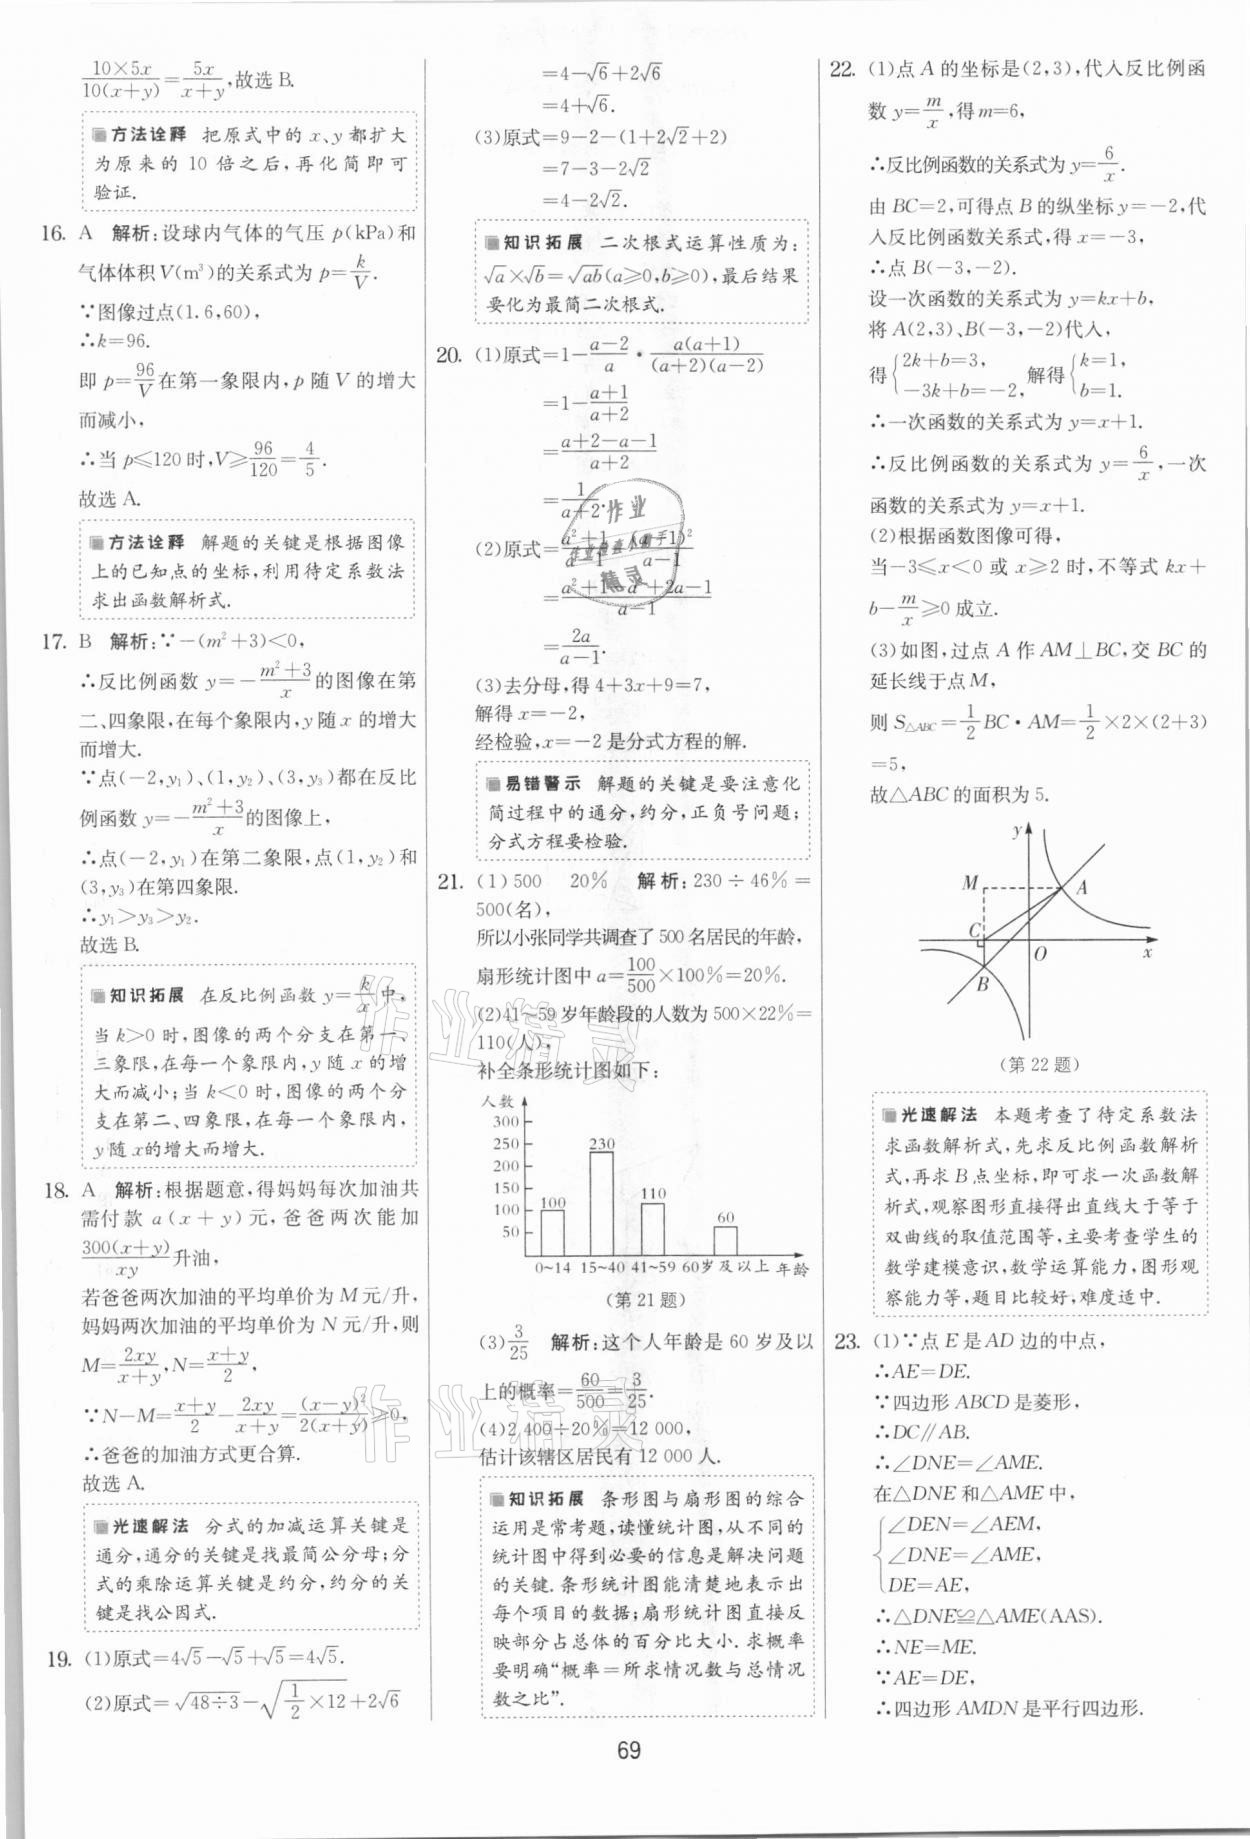 10×5x/10(x+y)=5x/x+y,故选 B.
方法诠释 把原式中的 x、y 都扩大
为原来的 10 倍之后,再化简即可
验证.
16. A 解析:设球内气体的气压 p(kPa)和
气体体积 V(m³)的关系式为 p=k/V.
∵图像过点(1.6,60),
∴k=96.
即 p=96/V在第一象限内,p 随 V 的增大
而减小,
∴当 p≤120 时,V≥96/120=4/5.
故选 A.
方法诠释 解题的关键是根据图像
上的已知点的坐标,利用待定系数法
求出函数解析式.
17. B 解析:∵−(m²+3)<0,
∴反比例函数 y=−m²+3/x的图像在第
二、四象限,在每个象限内,y 随 x 的增大
而增大.
∵点(−2,y₁)、(1,y₂)、(3,y₃)都在反比
例函数 y=−m²+3/x的图像上,
∴点(−2,y₁)在第二象限,点(1,y₂)和
(3,y₃)在第四象限.
∴y₁>y₃>y₂.
故选 B.
知识拓展 在反比例函数 y=k/x中,
当 k>0 时,图像的两个分支在第一、
三象限,在每一个象限内,y 随 x 的增
大而减小;当 k<0 时,图像的两个分
支在第二、四象限,在每一个象限内,
y 随 x的增大而增大.
18. A 解析:根据题意,得妈妈每次加油共
需付款 a(x+y)元,爸爸两次能加
300(x+y)/xy升油,
若爸爸两次加油的平均单价为 M 元/升,
妈妈两次加油的平均单价为 N 元/升,则
M=2xy/x+y,N=x+y/2,
∵N−M=x+y/2−2xy/x+y=(x−y)²/2(x+y)≥0,
∴爸爸的加油方式更合算.
故选 A.
光速解法 分式的加减运算关键是
通分,通分的关键是找最简公分母;分
式的乘除运算关键是约分,约分的关
键是找公因式.
19. (1)原式=4√5−√5+√5=4√5.
(2)原式=√48÷3−√1/2×12+2√6
=4−√6+2√6
=4+√6.
(3)原式=9−2−(1+2√2+2)
=7−3−2√2
=4−2√2.
知识拓展 二次根式运算性质为:
√a×√b=√ab(a≥0,b≥0),最后结果
要化为最简二次根式.
20. (1)原式=1−a−2/a·a(a+1)/(a+2)(a−2)
=1−a+1/a+2
=a+2−a−1/a+2
=1/a+2.
(2)原式=a²+1/a−1−(a−1)²/a−1
=a²+1−a²+2a−1/a−1
=2a/a−1.
(3)去分母,得 4+3x+9=7,
解得 x=−2,
经检验,x=−2 是分式方程的解.
易错警示 解题的关键是要注意化
简过程中的通分,约分,正负号问题;
分式方程要检验.
21. (1)500 20% 解析:230÷46%=
500(名),
所以小张同学共调查了 500 名居民的年龄,
扇形统计图中 a=100/500×100%=20%.
(2)41~59 岁年龄段的人数为 500×22%=
110(人),
补全条形统计图如下:
人数
300
250
200
150
100
50
100
230
110
60
0~14 15~40 41~59 60岁及以上 年龄
(第 21 题)
(3)3/25 解析:这个人年龄是 60 岁及以
上的概率=60/500=3/25.
(4)2 400÷20%=12 000,
估计该辖区居民有 12 000 人.
知识拓展 条形图与扇形图的综合
运用是常考题,读懂统计图,从不同的
统计图中得到必要的信息是解决问题
的关键.条形统计图能清楚地表示出
每个项目的数据;扇形统计图直接反
映部分占总体的百分比大小.求概率
要明确“概率=所求情况数与总情况
数之比”.
22. (1)点 A 的坐标是(2,3),代入反比例函
数 y=m/x,得 m=6,
∴反比例函数的关系式为 y=6/x.
由 BC=2,可得点 B 的纵坐标 y=−2,代
入反比例函数关系式,得 x=−3,
∴点 B(−3,−2).
设一次函数的关系式为 y=kx+b,
将 A(2,3)、B(−3,−2)代入,
得{2k+b=3, −3k+b=−2, 解得{k=1, b=1.
∴一次函数的关系式为 y=x+1.
∴反比例函数的关系式为 y=6/x,一次
函数的关系式为 y=x+1.
(2)根据函数图像可得,
当−3≤x<0 或 x≥2 时,不等式 kx+
b−m/x≥0 成立.
(3)如图,过点 A 作 AM⊥BC,交 BC 的
延长线于点 M,
则 S△ABC=1/2BC·AM=1/2×2×(2+3)
=5,
故△ABC 的面积为 5.
y
M
A
C
O
x
B
(第 22 题)
光速解法 本题考查了待定系数法
求函数解析式,先求反比例函数解析
式,再求 B 点坐标,即可求一次函数解
析式,观察图形直接得出直线大于等于
双曲线的取值范围等,主要考查学生的
数学建模意识,数学运算能力,图形观
察能力等,题目比较好,难度适中.
23. (1)∵点 E 是 AD 边的中点,
∴AE=DE.
∵四边形 ABCD 是菱形,
∴DC∥AB.
∴∠DNE=∠AME.
在△DNE 和△AME 中,
{∠DEN=∠AEM,
∠DNE=∠AME,
DE=AE,
∴△DNE≌△AME(AAS).
∴NE=ME.
∵AE=DE,
∴四边形 AMDN 是平行四边形.
69
作业精灵
作业精灵